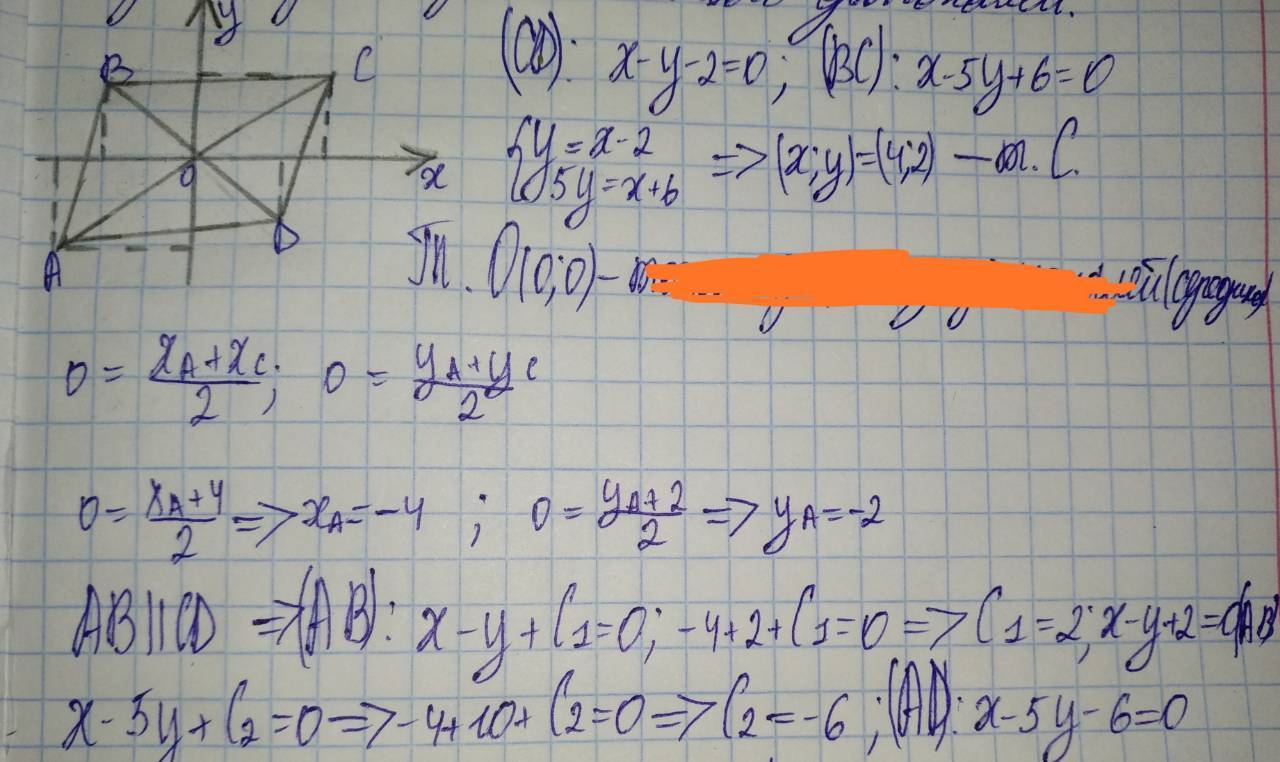 y
B
C
O
x
A
D
(CD): x-y-2=0; (BC): x-5y+6=0
{y=x-2
5y=x+6 => (x;y)=(4;2) — т. C.
Т. O(0;0) –
0 = (xA+xC)/2; 0 = (yA+yC)/2
0 = (xA+4)/2 => xA=-4 ; 0 = (yA+2)/2 => yA=-2
AB||CD => (AB): x-y+C1=0; -4+2+C1=0 => C1=2; x-y+2=0(AB)
x-5y+C2=0 => -4+10+C2=0 => C2=-6; (AD): x-5y-6=0